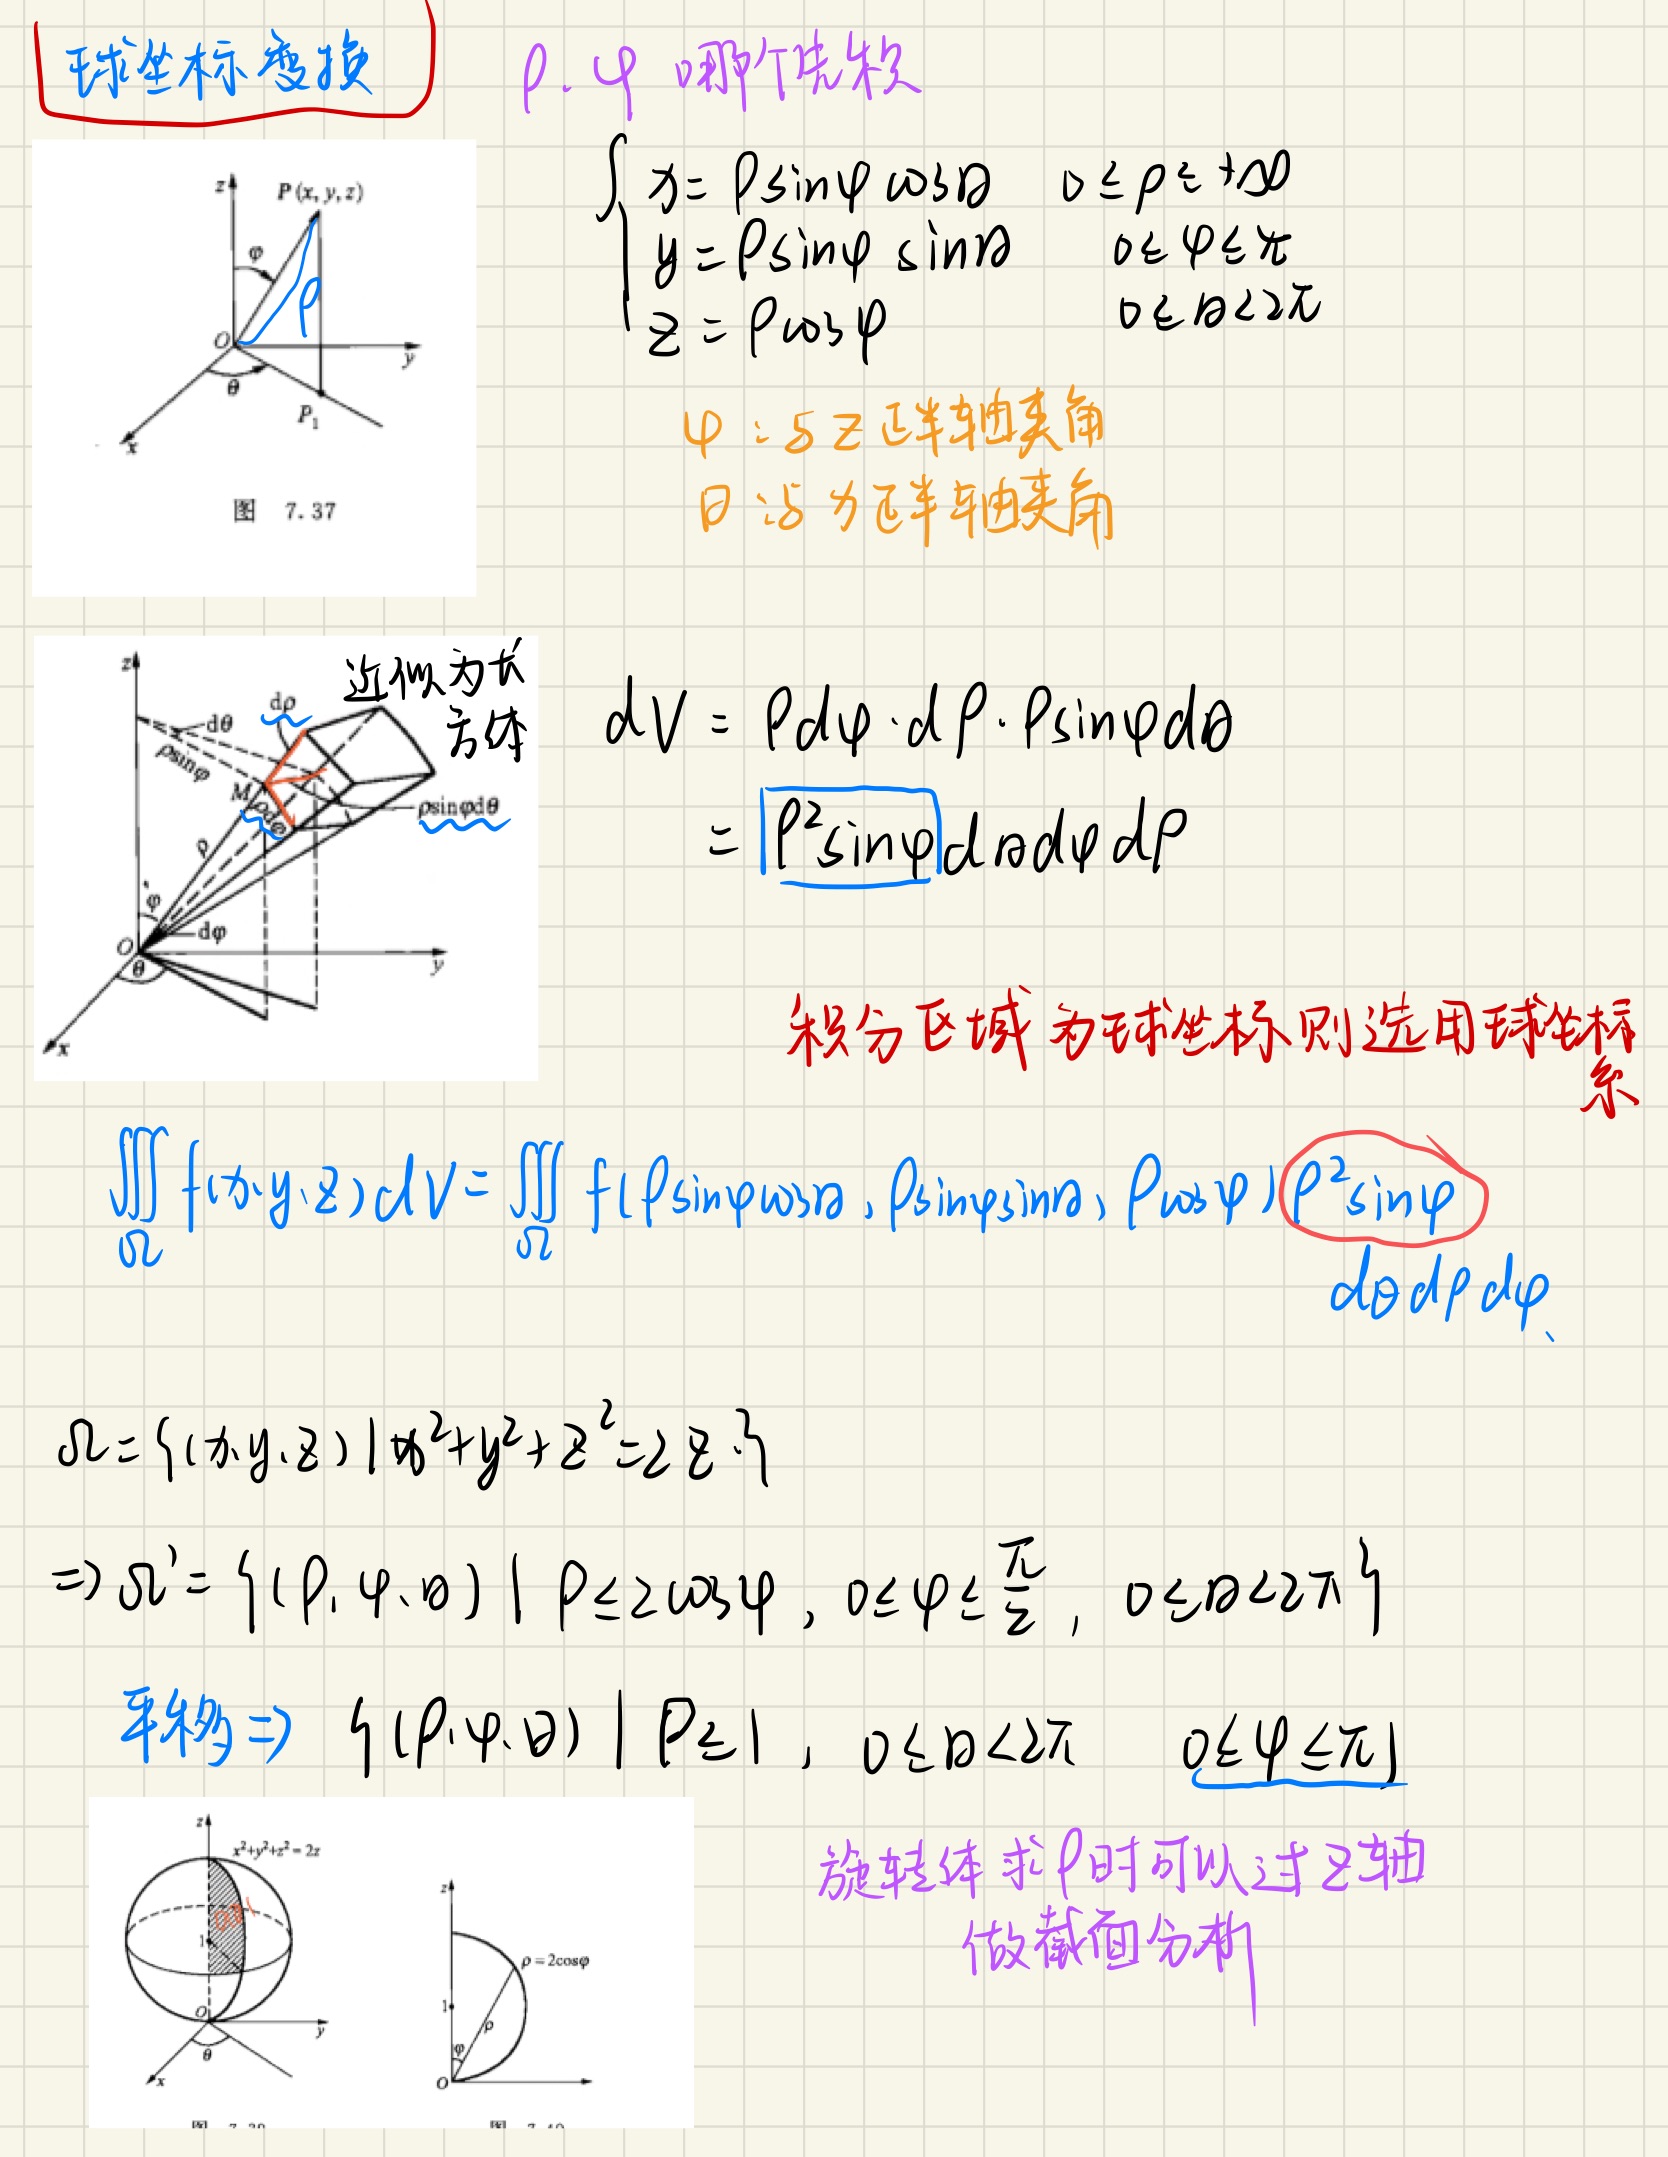 球坐标变换
ρ、φ 哪个先积
z
P(x, y, z)
φ
ρ
O
y
θ
P₁
x
图 7.37
x = ρsinφ cosθ 0 ≤ ρ ≤ +∞
y = ρsinφ sinθ 0 ≤ φ ≤ π
z = ρcosφ 0 ≤ θ < 2π
φ：与 z 正半轴夹角
θ：与 x 正半轴夹角
近似为长
方体
z
dρ
dθ
ρsinφ
M
ρdφ
ρsinφdθ
ρ
φ
dφ
O
θ
y
x
dV = ρdφ·dρ·ρsinφdθ
= ρ²sinφ dθdφdρ
积分区域为球坐标则选用球坐标
系
∭Ω f(x,y,z)dV = ∭Ω f(ρsinφcosθ, ρsinφsinθ, ρcosφ) ρ²sinφ
dθdρdφ
Ω = {(x,y,z) | x²+y²+z²=2z}
⇒ Ω' = {(ρ,φ,θ) | ρ≤2cosφ, 0≤φ≤π/2, 0≤θ<2π}
平移 ⇒ {(ρ,φ,θ) | ρ≤1, 0≤θ<2π 0≤φ≤π}
z
x²+y²+z²=2z
1
O
y
θ
x
z
ρ=2cosφ
1
ρ
φ
O
旋转体求ρ时可以过z轴
做截面分析